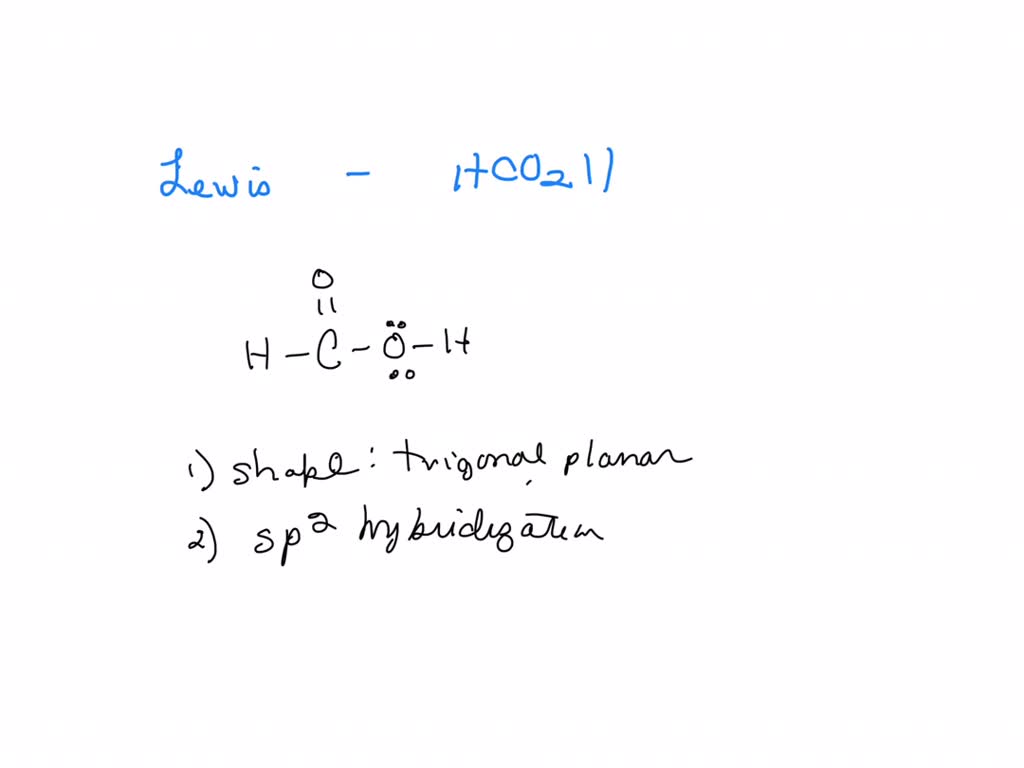 Lewis - HCO2H
O
||
H - C - Ö - H
1) shape: trigonal planar
2) sp² hybridization